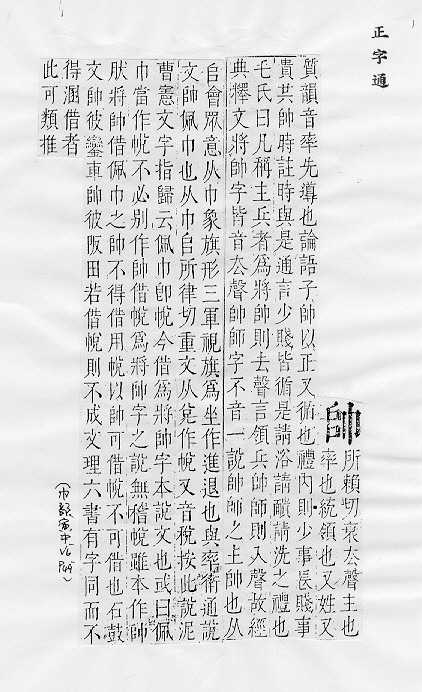 正字通
帥
所類切衰厺聲主也
率也統領也又姓又
質韻音率先導也論語子帥以正又循也禮內則少事長賤事
貴共帥時註時與是通言少賤皆循是請浴請靧請洗之禮也
毛氏曰凡稱主兵者爲將帥則去聲言領兵帥師則入聲故經
典釋文將帥字皆音厺聲帥師字不音一說帥師之主帥也从
𠂤會眾意从巾象旗形三軍視旗爲坐作進退也與率衛通說
文帥佩巾也从巾𠂤所律切重文从兌作帨又音稅按此說泥
曹憲文字指歸云佩巾卽帨今借爲將帥字本說文也或曰佩
巾當作帨不必别作帥借帨爲將帥字之說無稽帨雖本作帥
肰將帥借佩巾之帥不得借用帨以帥可借帨不可借也石鼓
文帥彼鑾車帥彼阪田若借帨則不成文理六書有字同而不
得溷借者
此可類推